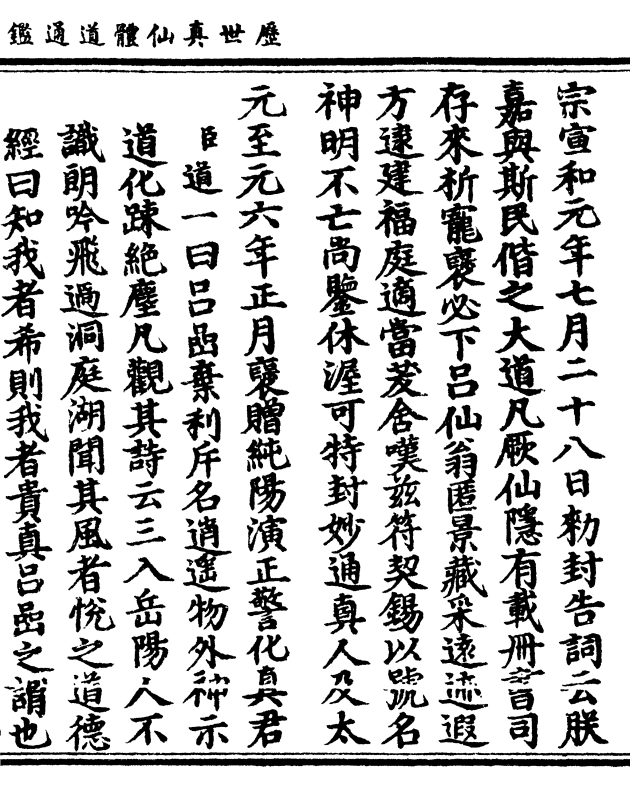 歷世真仙體道通鑑
宗宣和元年七月二十八日勑封告詞云朕
嘉與斯民偕之大道凡厥仙隱有載冊司
存來析寵褒必下呂仙翁匿景藏采遠迹遐
方逮建福庭適當茇舍嘆茲符契錫以號名
神明不亡尚鑒休渥可特封妙通真人及太
元至元六年正月褒贈純陽演正警化真君
臣道一曰呂嵒棄利斥名逍遙物外神示
道化踈絕塵凡觀其詩云三入岳陽人不
識朗吟飛過洞庭湖聞其風者悅之道德
經曰知我者希則我者貴真呂嵒之謂也